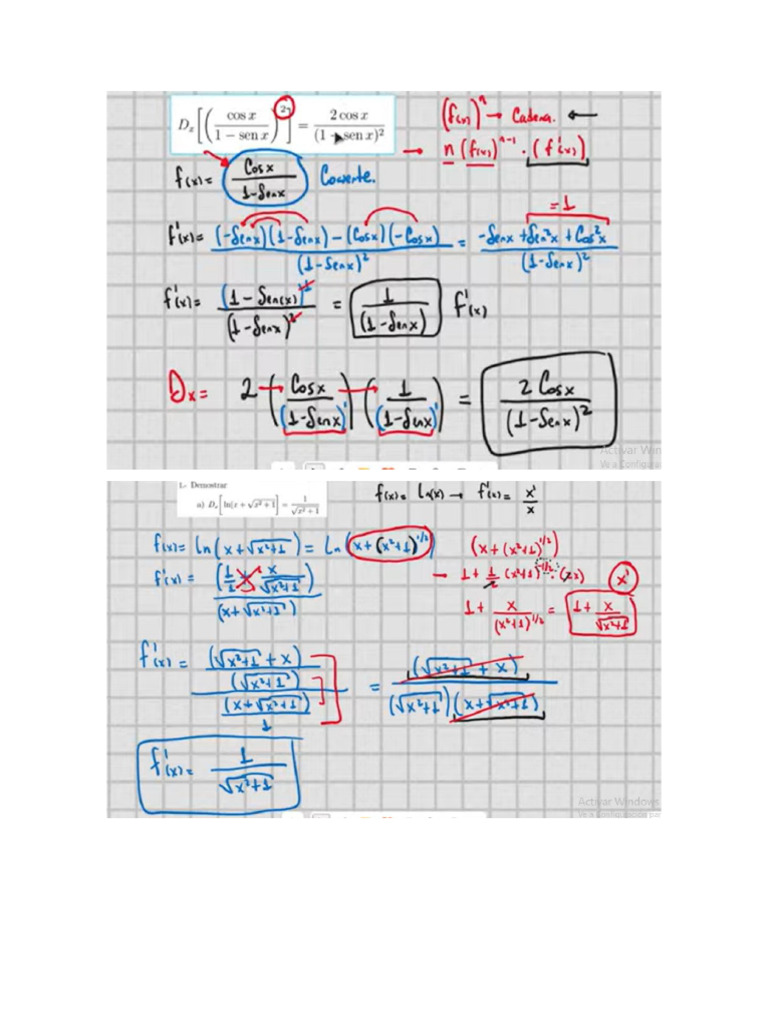 D_x[((cos x)/(1 − sen x))^2] = (2 cos x)/(1 − sen x)^2
(f(x))^n → Cadena. ←
→ n (f(x))^{n-1} · (f'(x))
f(x) = (Cosx)/(1-Senx) Cociente.
f'(x) = ((-Senx)(1-Senx) - (Cosx)(-Cosx))/((1-Senx)^2) = (-Senx + Sen^2x + Cos^2x)/((1-Senx)^2)
=1
f'(x) = ((1-Sen(x))^1)/((1-Senx)^2) = 1/((1-Senx)) f'(x)
D_x = 2 ((Cosx)/((1-Senx)^1)) (1/((1-Senx)^1)) = (2 Cosx)/((1-Senx)^2)
Activar Win
Ve a Configura
1.- Demostrar
a) D_x[ln(x + √(x^2+1)] = 1/√(x^2+1)
f(x) = ln(x) → f'(x) = x'/x
f(x) = ln(x+√(x^2+1)) = ln(x+(x^2+1)^{1/2})
(x+(x^2+1)^{1/2})
f'(x) = (1/1 + x/√(x^2+1))/((x+√(x^2+1)))
→ 1 + 1/2 (x^2+1)^{-1/2} · (2x) x'
1 + x/((x^2+1)^{1/2}) = 1 + x/√(x^2+1)
f'(x) = ((√(x^2+1) + x)/(√(x^2+1)))/((x+√(x^2+1))/1) = (√(x^2+1) + x)/((√(x^2+1))(x+√(x^2+1)))
f'(x) = 1/√(x^2+1)
Activar Windows